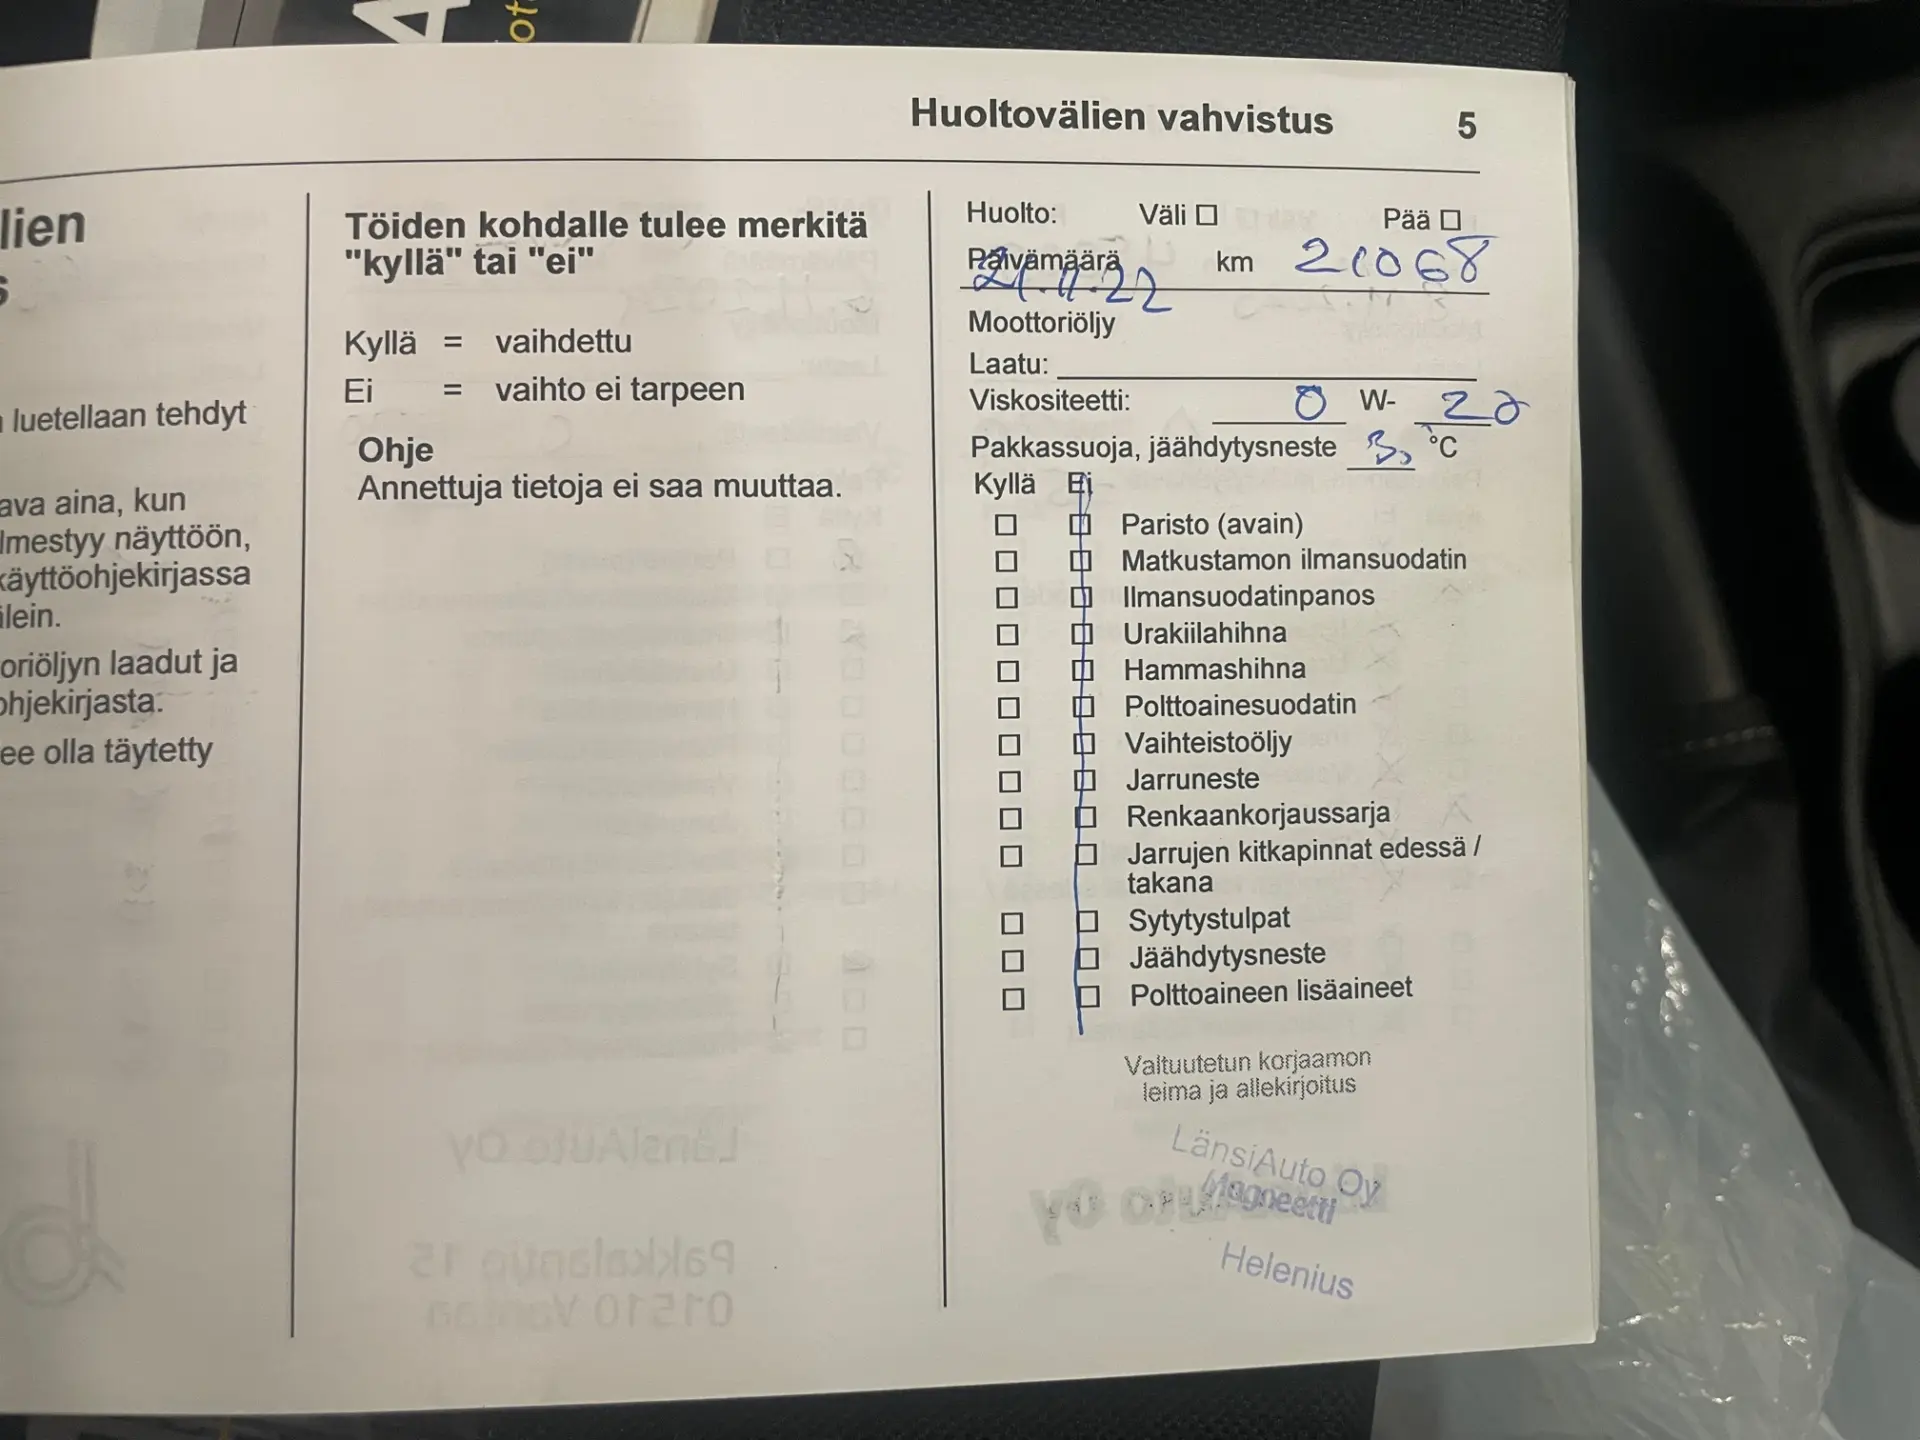 Huoltovälien vahvistus 5
lien
luetellaan tehdyt
ava aina, kun
lmestyy näyttöön,
käyttöohjekirjassa
ilein.
oriöljyn laadut ja
ohjekirjasta:
ee olla täytetty
Töiden kohdalle tulee merkitä
"kyllä" tai "ei"
Kyllä = vaihdettu
Ei = vaihto ei tarpeen
Ohje
Annettuja tietoja ei saa muuttaa.
Huolto: Väli □ Pää □
Päivämäärä km 21068
21.11.22
Moottoriöljy
Laatu:
Viskositeetti: 0 W- 20
Pakkassuoja, jäähdytysneste °C
Kyllä Ei
Paristo (avain)
Matkustamon ilmansuodatin
Ilmansuodatinpanos
Urakiilahihna
Hammashihna
Polttoainesuodatin
Vaihteistoöljy
Jarruneste
Renkaankorjaussarja
Jarrujen kitkapinnat edessä /
takana
Sytytystulpat
Jäähdytysneste
Polttoaineen lisäaineet
Valtuutetun korjaamon
leima ja allekirjoitus
LänsiAuto Oy
Magneetti
Helenius